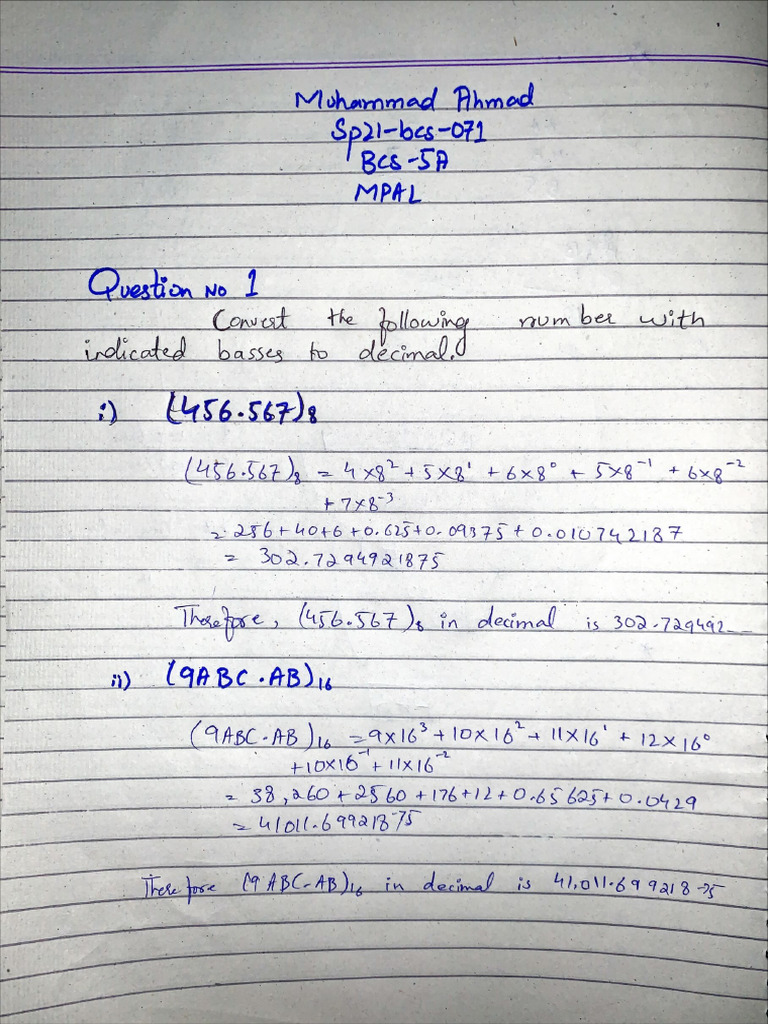 Muhammad Ahmad
Sp21-bcs-071
Bcs-5A
MPAL
Question No 1
Convert the following number with
indicated basses to decimal.
i) (456.567)₈
(456.567)₈ = 4×8² + 5×8¹ + 6×8⁰ + 5×8⁻¹ + 6×8⁻²
+ 7×8⁻³
= 256+40+6+0.625+0.09375+0.010742187
= 302.7294921875
Therefore, (456.567)₈ in decimal is 302.729492---
ii) (9ABC.AB)₁₆
(9ABC.AB)₁₆ = 9×16³ + 10×16² + 11×16¹ + 12×16⁰
+10×16⁻¹+11×16⁻²
= 38,260+2560+176+12+0.65625+0.0429
= 41011.69921875
Therefore (9ABC.AB)₁₆ in decimal is 41,011.69921875